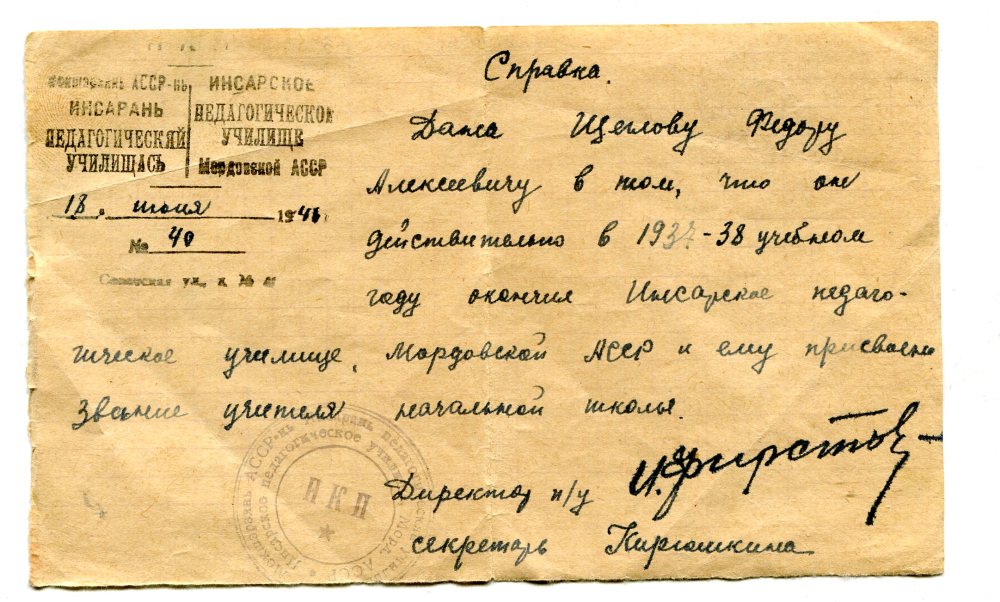 Мокшэрзянь АССР-нь
ИНСАРАНЬ
ПЕДАГОГИЧЕСКЯЙ
УЧИЛИЩАСЬ
ИНСАРСКОЕ
ПЕДАГОГИЧЕСКОЕ
УЧИЛИЩЕ
Мордовской АССР
18. июня 194
№ 40
Советская ул., д. №
Справка.
Дана Щеглову Федору
Алексеевичу в том, что он
действительно в 1937-38 учебном
году окончил Инсарское педаго-
гическое училище, Мордовской АССР и ему присвоено
звание учителя начальной школы.
Директор п/у И. Фирстов
секретарь Кирюшкина
Инсарское педагогическое училище Морд. АССР
НКП